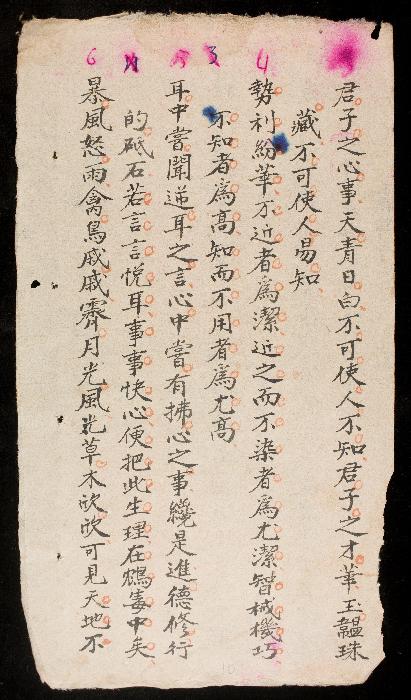 君子之心事天青日白不可使人不知君子之才華玉韞珠
藏不可使人易知
4
勢利紛華不近者爲潔近之而不染者爲尤潔智械機巧
3
不知者爲高知而不用者爲尤高
5
耳中當聞逆耳之言心中當有拂心之事纔是進德修行
的砥石若言言悅耳事事快心便把此生理在鴆毒中矣
6
暴風怒雨禽鳥戚戚霽月光風光草木欣欣可見天地不